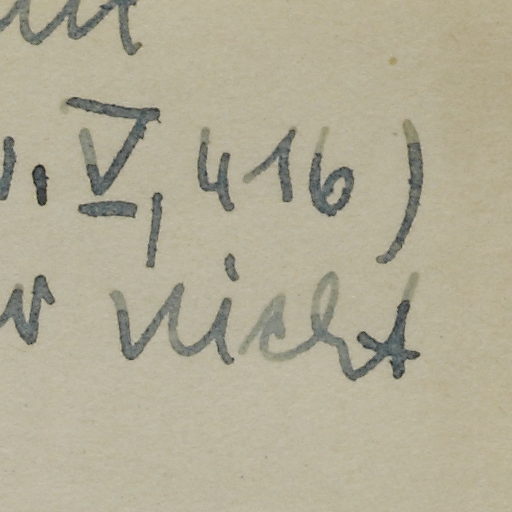 . V, 416)
nicht